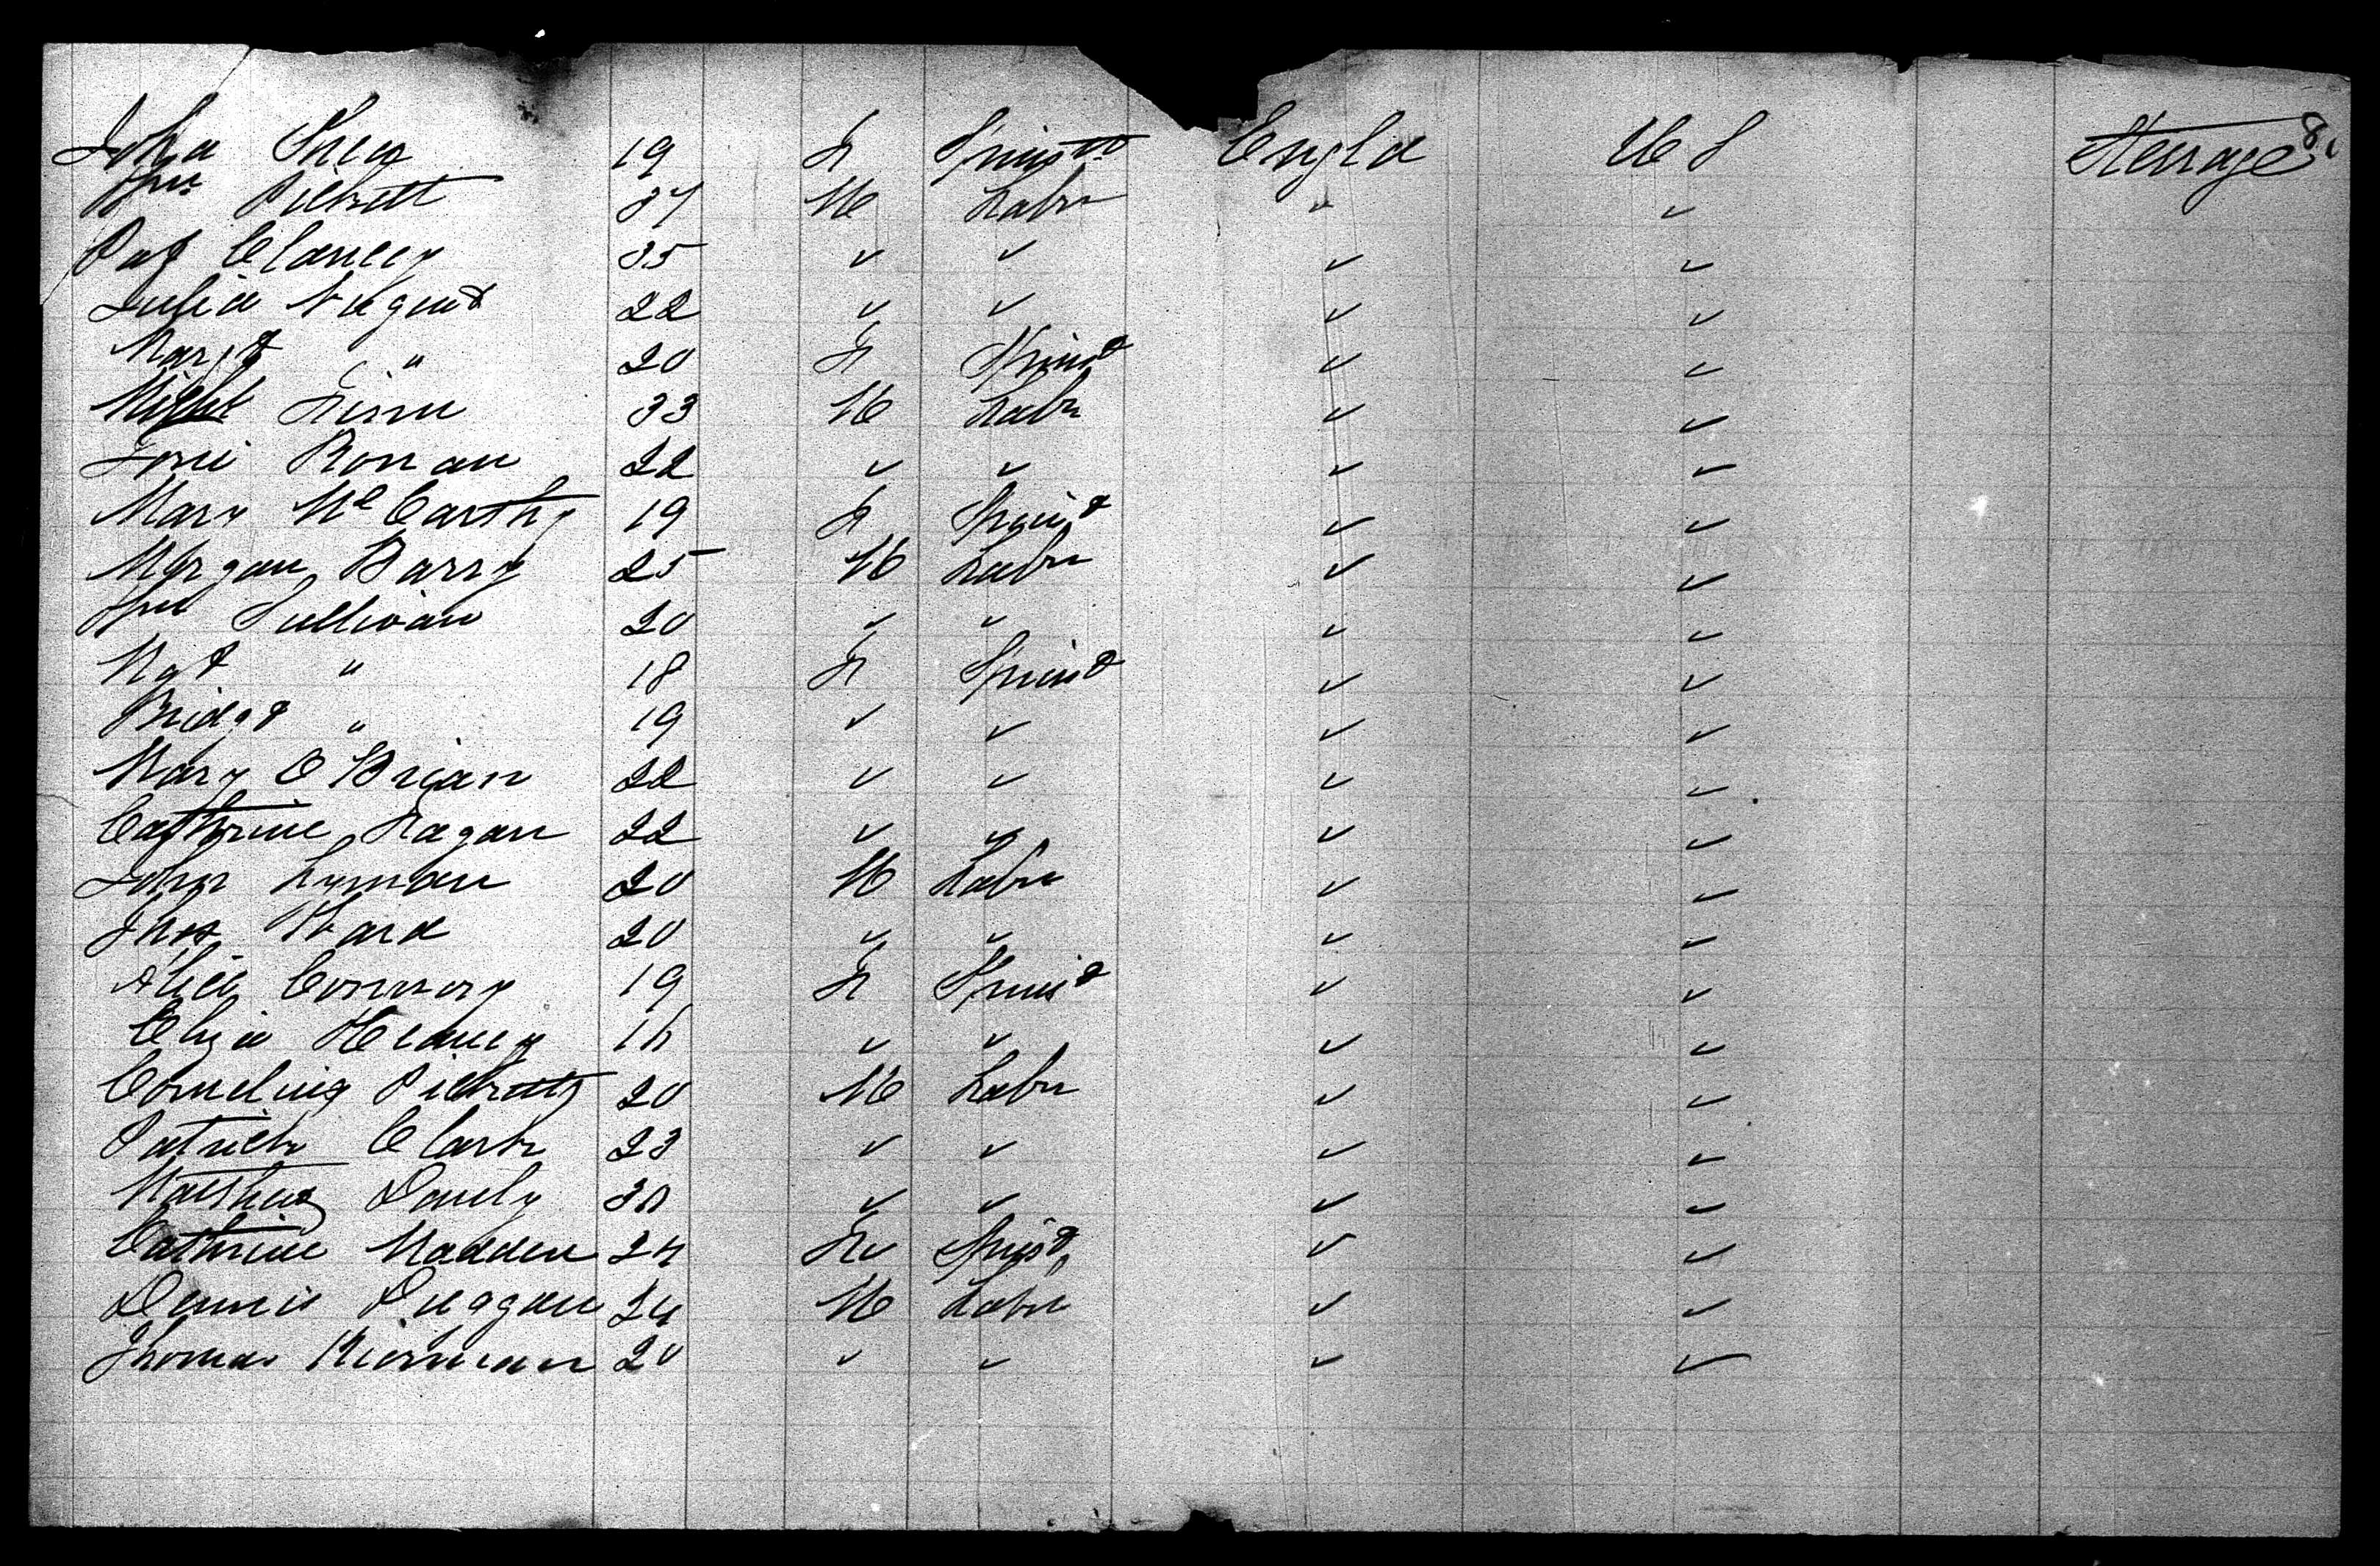 Joha Shea 19 F Spinstr Engld U S Steerage 81
Jno Pickett 37 M Labr " "
Pat Clancey 35 " " " "
Julia Nugent 22 " " " "
Margt " 20 F Spinst " "
Michl Finn 33 M Labr " "
Ronan 22 " " " "
Mary McCarthy 19 F Spinst " "
Morgan Barry 25 M Labr " "
Jno Sullivan 20 " " " "
Mgt " 18 F Spinst " "
Bridgt " 19 " " " "
Mary O Brian 22 " " " "
Cathrine Ragan 22 " " " "
John Lyman 20 M Labr " "
Thos Ward 20 " " " "
Alice Conway 19 F Spinst " "
Eliza Heaney 16 " " " "
Cornelius Picketts 20 M Labr " "
Patrick Clark 23 " " " "
Mathew " " " "
Cathrine Madden 24 F Spinst " "
Dennis Duggan 24 M Labr " "
Thomas Kiernan 20 " " " "